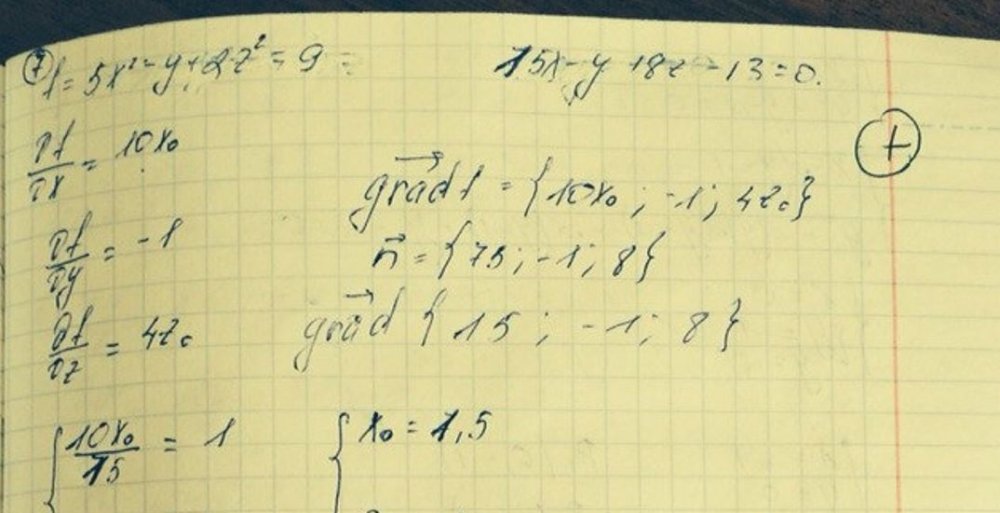 ⑦ f = 5x² - y + 2z² = 9 =
15x - y + 8z - 13 = 0.
∂f/∂x = 10x₀
grad f = {10x₀ ; -1 ; 4z₀}
∂f/∂y = -1
n = {15 ; -1 ; 8}
∂f/∂z = 4z₀
grad {15 ; -1 ; 8}
10x₀/15 = 1
x₀ = 1,5
+